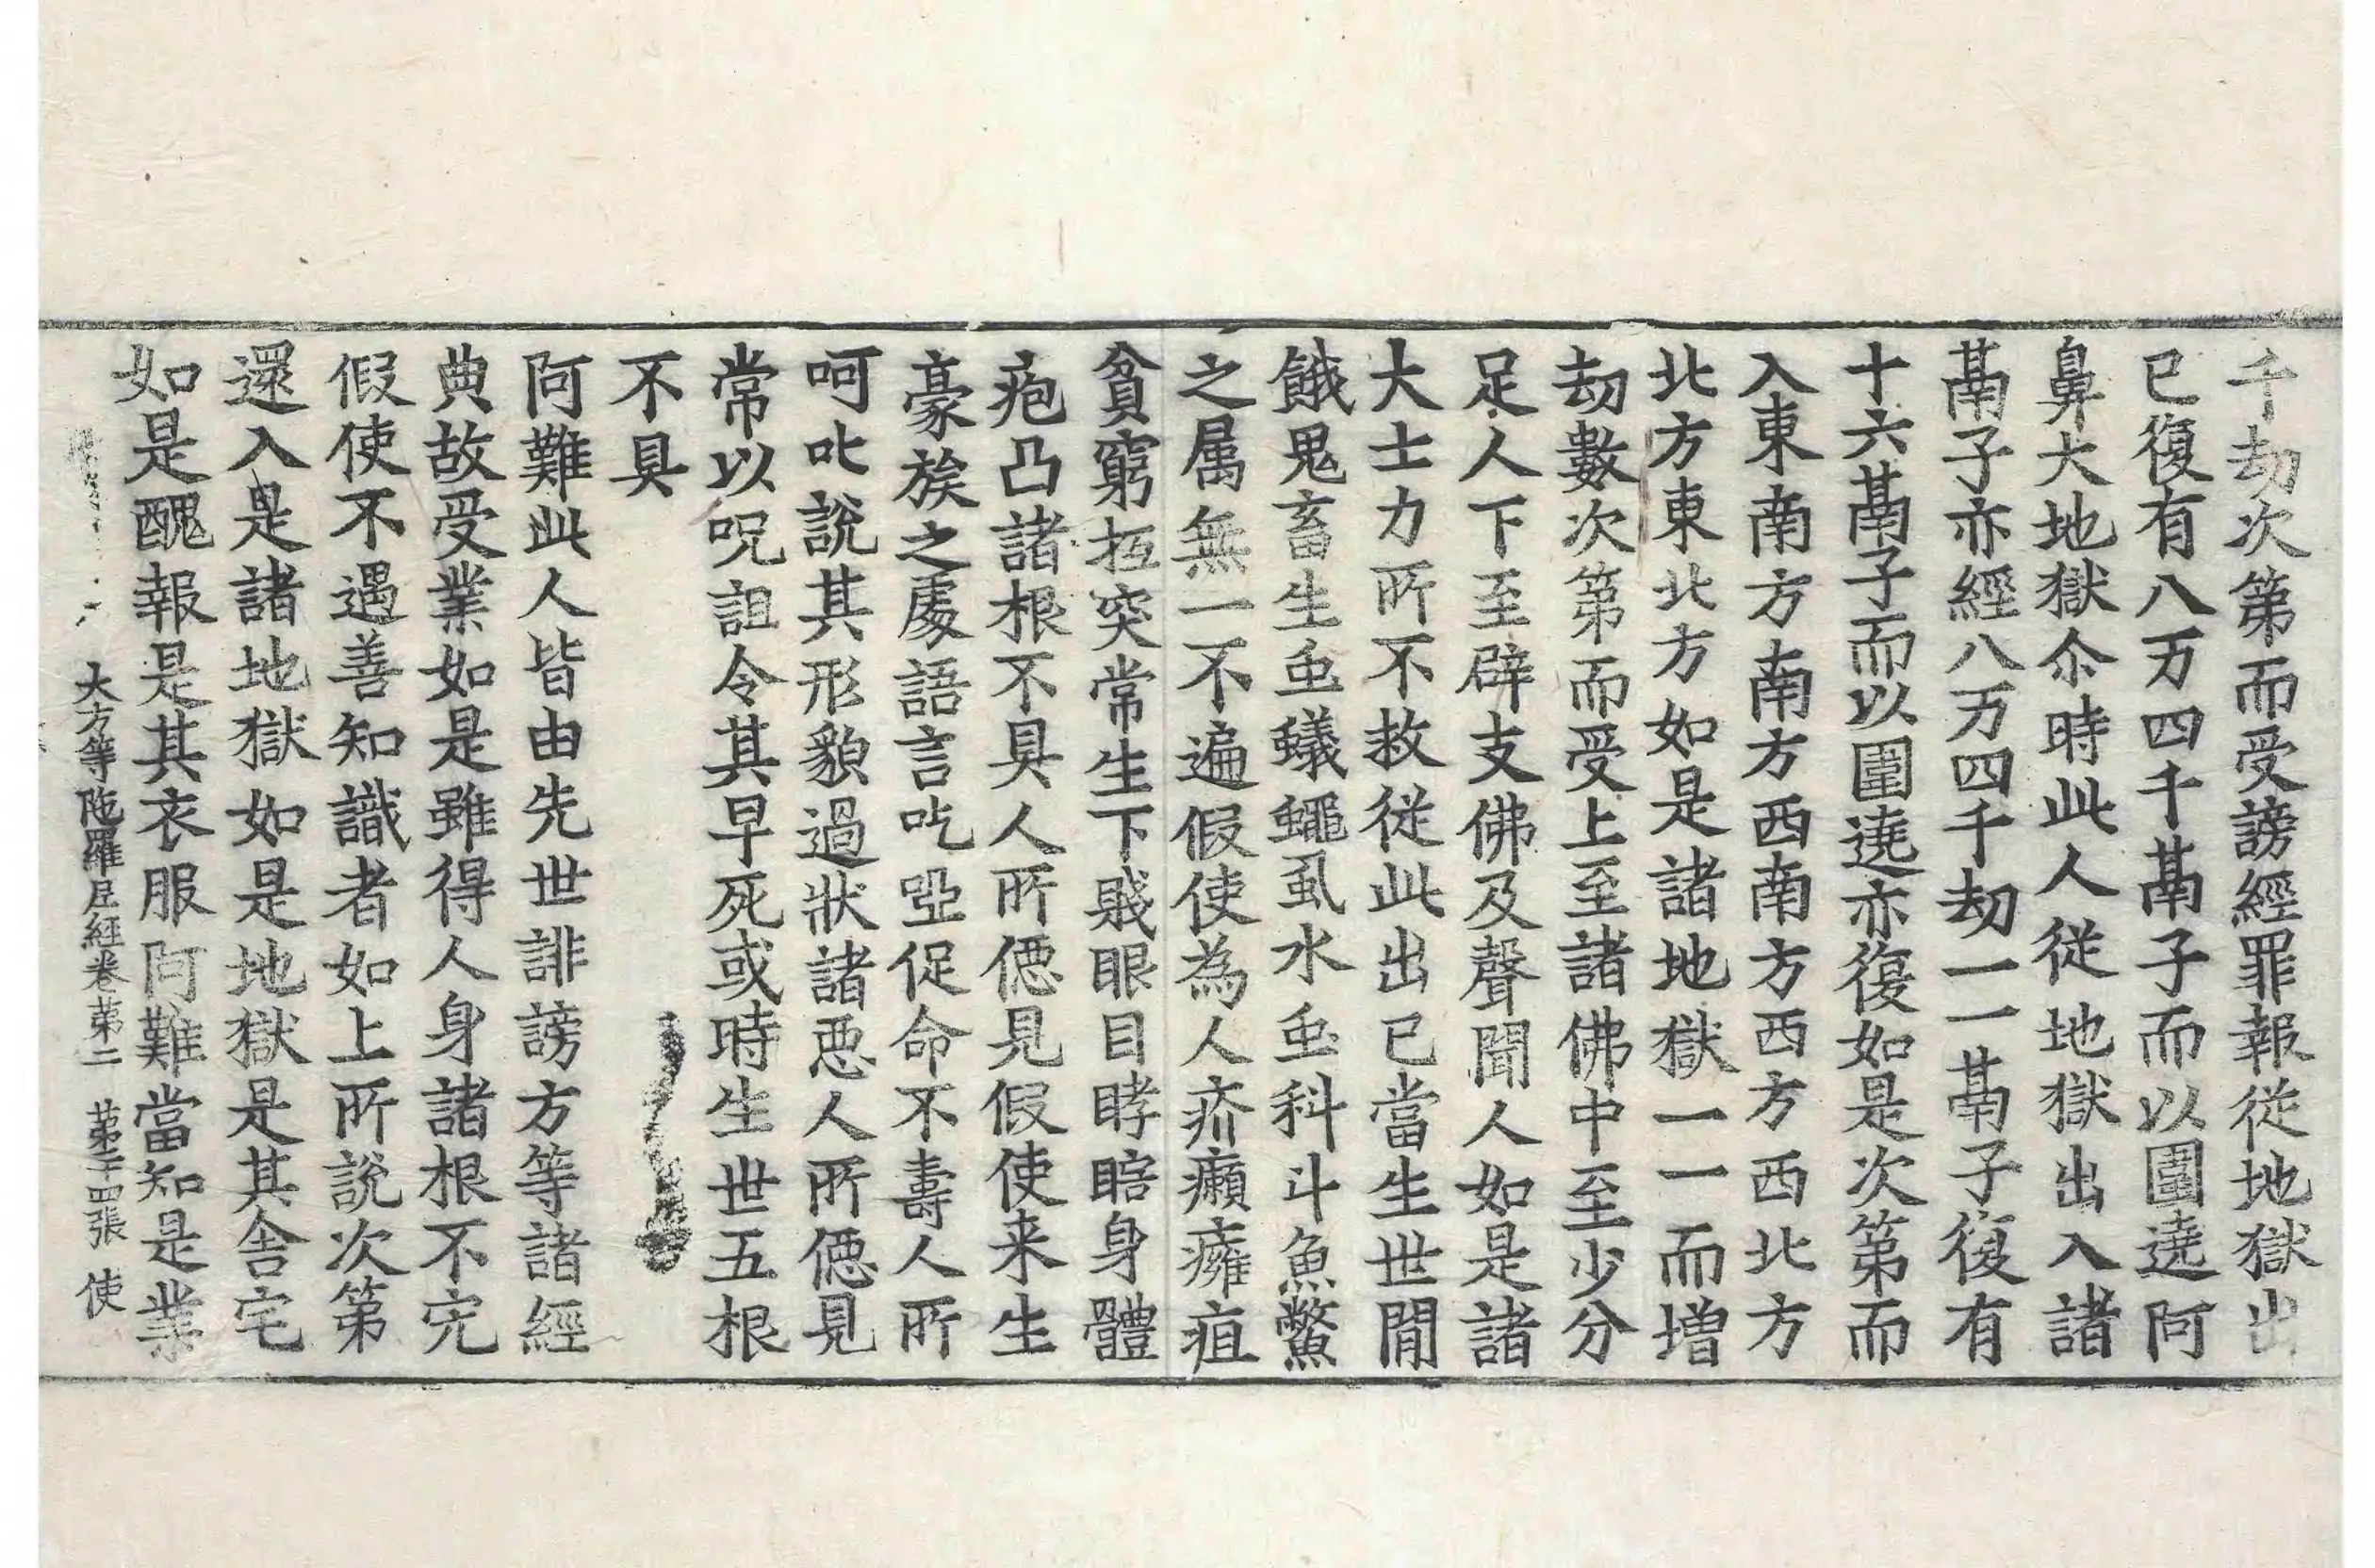 千劫次第而受謗經罪報從地獄出
已復有八万四千鬲子而以圍遶阿
鼻大地獄尒時此人從地獄出入諸
鬲子亦經八万四千劫一一鬲子復有
十六鬲子而以圍遶亦復如是次第而
入東南方南方西南方西方西北方
北方東北方如是諸地獄一一而增
劫數次第而受上至諸佛中至少分
足人下至辟支佛及聲聞人如是諸
大士力所不救從此出已當生世閒
餓鬼畜生虫蟻蠅虱水虫科斗魚鱉
之属無一不遍假使為人疥癩癰疽
貧窮抂突常生下賤眼目睟瞎身體
疱凸諸根不具人所僫見假使来生
豪族之處語言吃啞促命不壽人所
呵叱說其形貌過狀諸惡人所僫見
常以呪詛令其早死或時生世五根
不具
阿難此人皆由先世誹謗方等諸經
典故受業如是雖得人身諸根不完
假使不遇善知識者如上所說次第
還入是諸地獄如是地獄是其舍宅
如是醜報是其衣服阿難當知是業
大方等陁羅尼經卷第二 第十四張 使